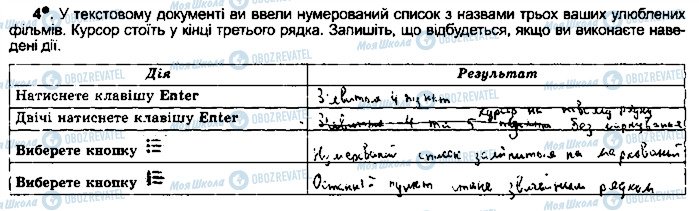 4°. У текстовому документі ви ввели нумерований список з назвами трьох ваших улюблених
фільмів. Курсор стоїть у кінці третього рядка. Запишіть, що відбудеться, якщо ви виконаєте наве-
дені дії.
Дія Результат
Натиснете клавішу Enter З'явиться 4 пункт
Двічі натиснете клавішу Enter З'явиться 4 та 5 пункт курсор на новому рядку без маркування
Виберете кнопку Нумерований список заміниться на маркований
Виберете кнопку Останній пункт стане звичайним рядком
Моя Школа OBOZREVATEL